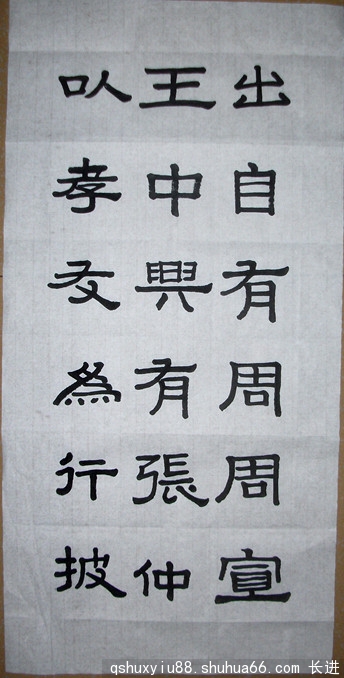 出自有周周宣
王中興有張仲
以孝友為行披
qshuxyiu88.shuhua66.com 长进